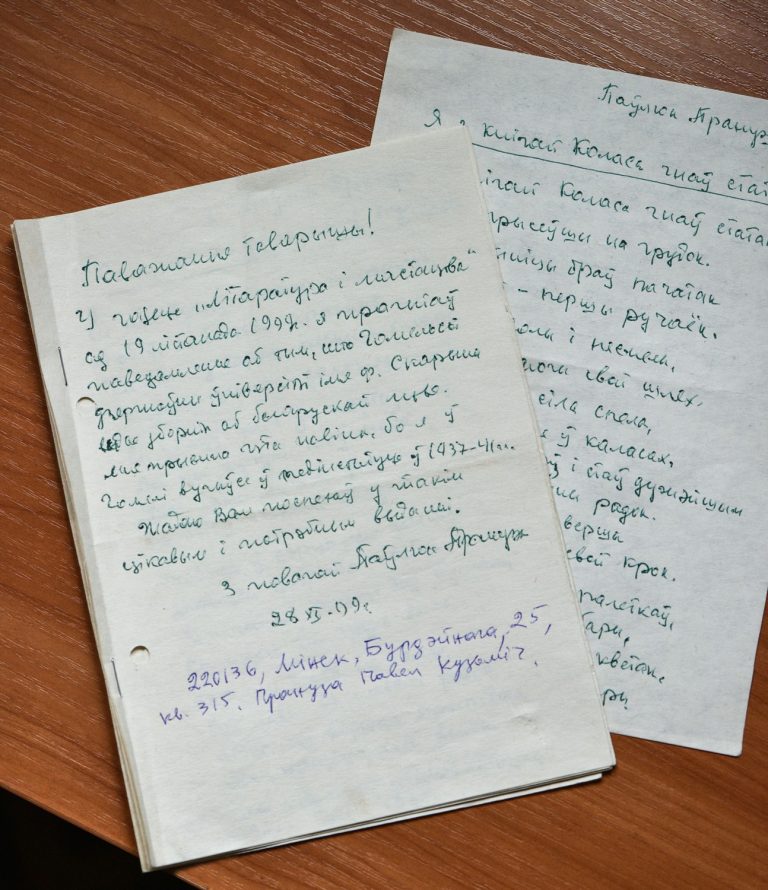 Паважаныя таварышы!
У газеце „Літаратура і мастацтва“
ад 19 лістапада 1999г. я прачытаў
паведамленне аб тым, што Гомельскі
дзяржаўны ўніверсітэт імя Ф. Скарыны
зборнік аб беларускай
мне прыемна гэта навіна, бо я ў
Гомелі вучыўся ў педінстытуце ў 1937-41г.г.
Жадаю Вам поспехаў у такім
цікавым і патрэбным выданні.
З павагай Паўлюк Прануза
28 XI-99г.
220136, Мінск, Бурдэйнага, 25,
кв. 315. Прануза Павел Кузьміч.
Паўлюк Прануз
Я з кнігай Коласа гнаў стат
ігай Коласа гнаў статак
прысеўшы на грудок.
браў пачатак
- першы ручаёк.
і
свой шлях.
сіла спела,
ў каласах,
ў і стаў дужэйшым
радок.
верша
свой крок.
палеткаў,
кветак.